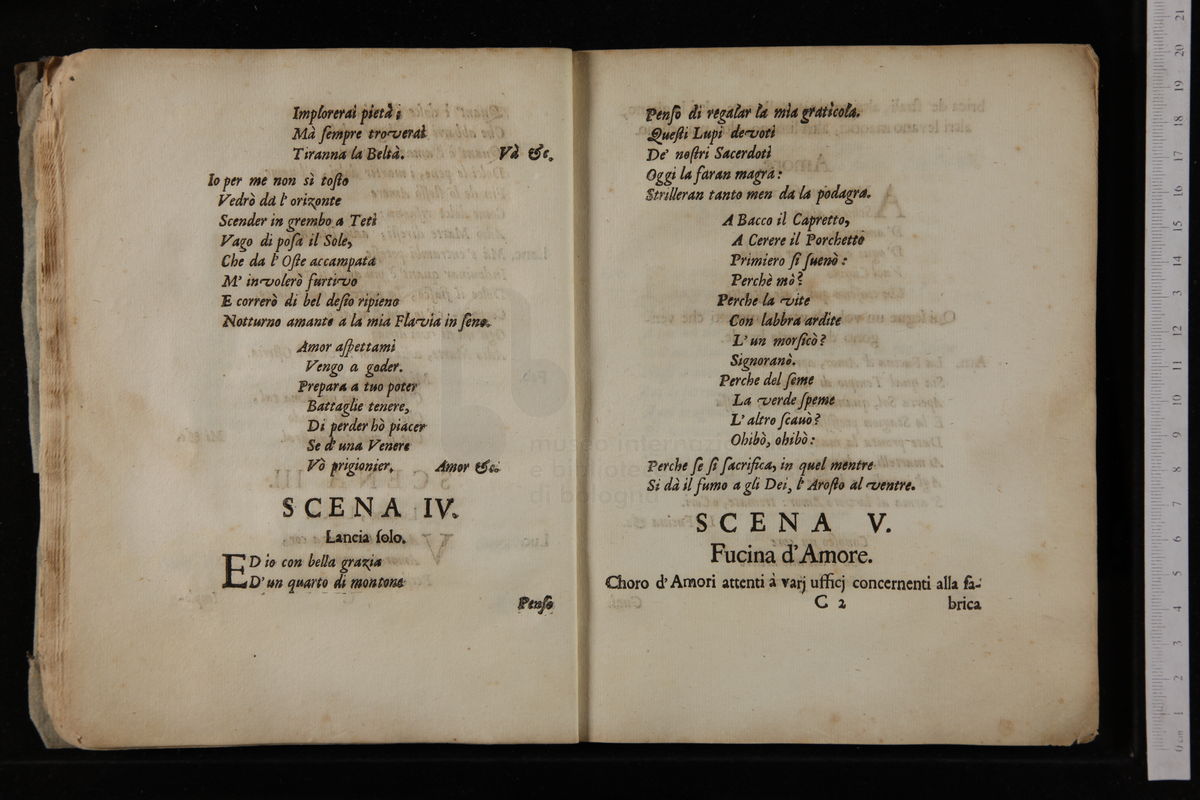 Imploreraì pietà;
Mà ſempre troveraì
Tiranna la Beltà. Và &c.
Io per me non sì toſto
Vedrò da l' orizonte
Scender in grembo a Tetì
Vago di poſa il Sole,
Che da l' Oſte accampata
M' involerò furtivo
E correrò di bel deſio ripieno
Notturno amante a la mia Flavia in ſeno.
Amor aſpettami
Vengo a goder.
Prepara a tuo poter
Battaglie tenere,
Di perder hò piacer
Se d' una Venere
Vò prigionier. Amor &c.
SCENA IV.
Lancia ſolo.
ED io con bella grazia
D' un quarto di montone
Penſo
Penſo di regalar la mia graticola.
Queſti Lupi devoti
De' noſtri Sacerdoti
Oggi la faran magra:
Strilleran tanto men da la podagra.
A Bacco il Capretto,
A Cerere il Porchetto
Primiero ſi ſuenò:
Perchè mò?
Perche la vite
Con labbra ardite
L' un morſicò?
Signoranò.
Perche del ſeme
La verde ſpeme
L' altro ſcauò?
Ohibò, ohibò:
Perche ſe ſi ſacrifica, in quel mentre
Si dà il fumo a gli Dei, l' Aroſto al ventre.
SCENA V.
Fucina d'Amore.
Choro d'Amori attenti à varj ufficj concernenti alla fa-
C 2 brica
museo internazio
e bibliote
di bologn